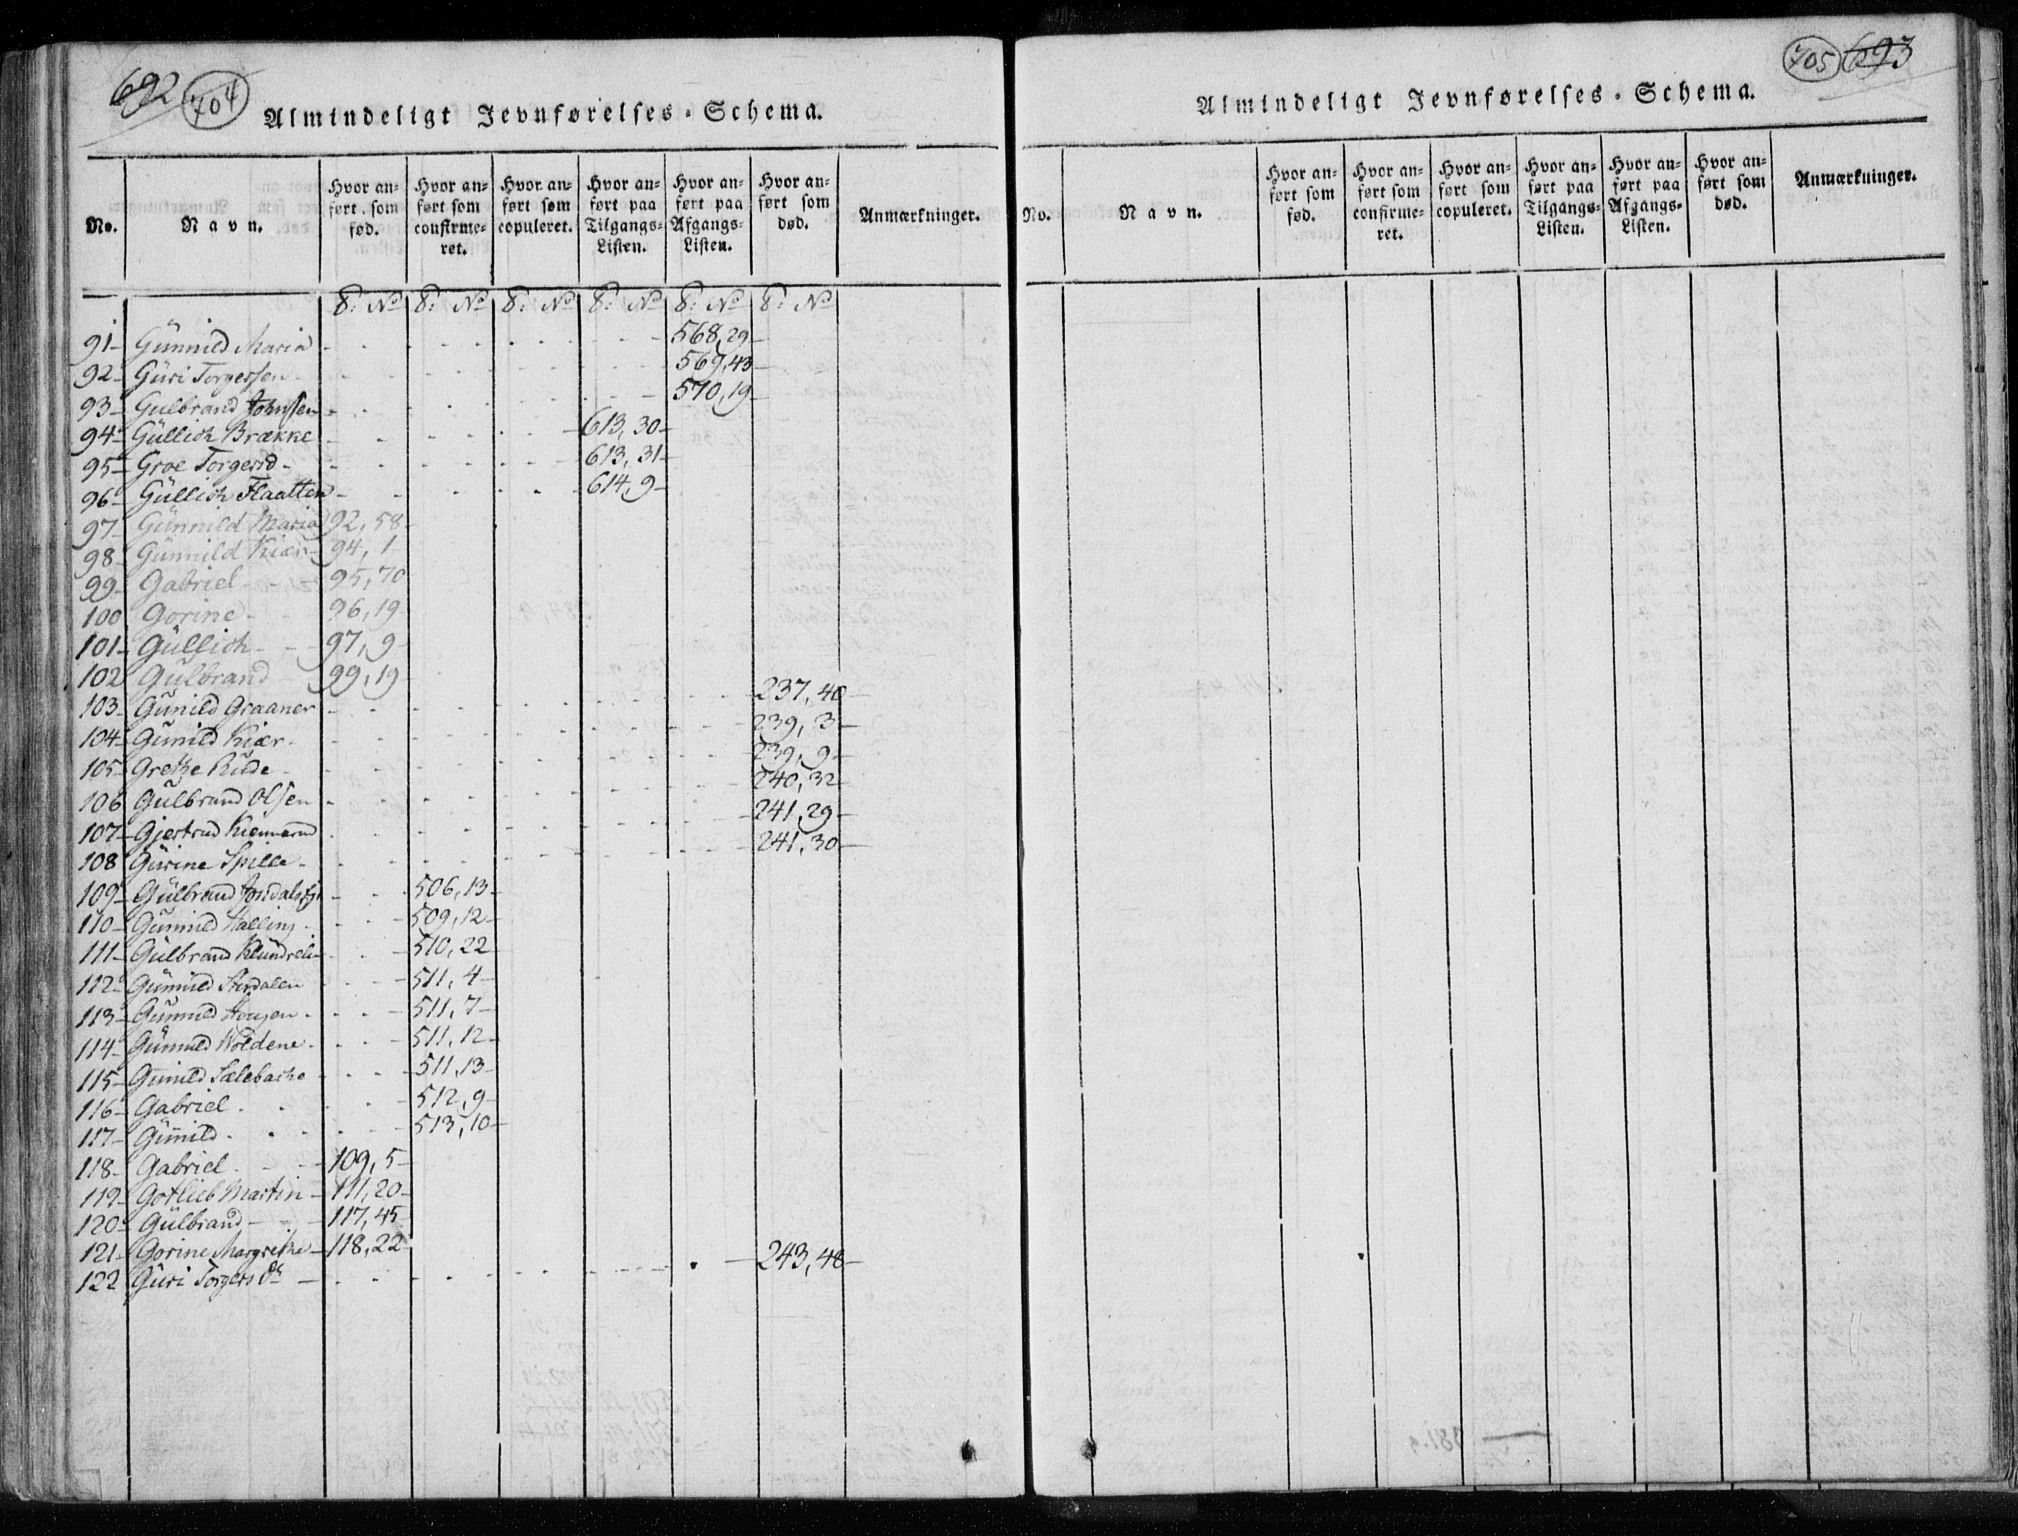 692 704
Almindeligt Jevnførelses-Schema.
No. Navn. Hvor anført som fød. Hvor anført som confirmeret. Hvor anført som copuleret. Hvor anført paa Tilgangs-Listen. Hvor anført paa Afgangs-Listen. Hvor anført som død. Anmærkninger.
S. No S. No S. No S. No S. No S. No
91 Günnild Maria 568,29
92 Güri Torgersen 569,43
93 Gulbrand Johnsen 570,19
94 Güllich Brække 613,30
95 Groe Torgersd 613,31
96 Güllich Flaatten 614,9
97 Günnild Maria 92,58
98 Günnild Kiær 94,1
99 Gabriel 95,70
100 Gorine 96,19
101 Güllich 97,9
102 Gulbrand 99,19
103 Gunild Graaner 237,40
104 Gunild Kiær 239,3
105 Grethe Rude 239,9
106 Gulbrand Olsen 240,32
107 Gjertrud 241,29
108 Gurine Spille 241,30
109 Gülbrand 506,13
110 Gunnild Halling 509,12
111 Gulbrand 510,22
112 Günnild 511,4
113 Gunnild 511,7
114 Günnild Woldene 511,12
115 Gunild Sælebakke 511,13
116 Gabriel 512,9
117 Gunild 513,10
118 Gabriel 109,5
119 Gotlieb Martin 111,20
120 Gülbrand 117,45
121 Gorine Margrethe 118,22
122 Güri Torgers Dr 243,48
705 693
Almindeligt Jevnførelses-Schema.
No. Navn. Hvor anført som fød. Hvor anført som confirmeret. Hvor anført som copuleret. Hvor anført paa Tilgangs-Listen. Hvor anført paa Afgangs-Listen. Hvor anført som død. Anmærkninger.